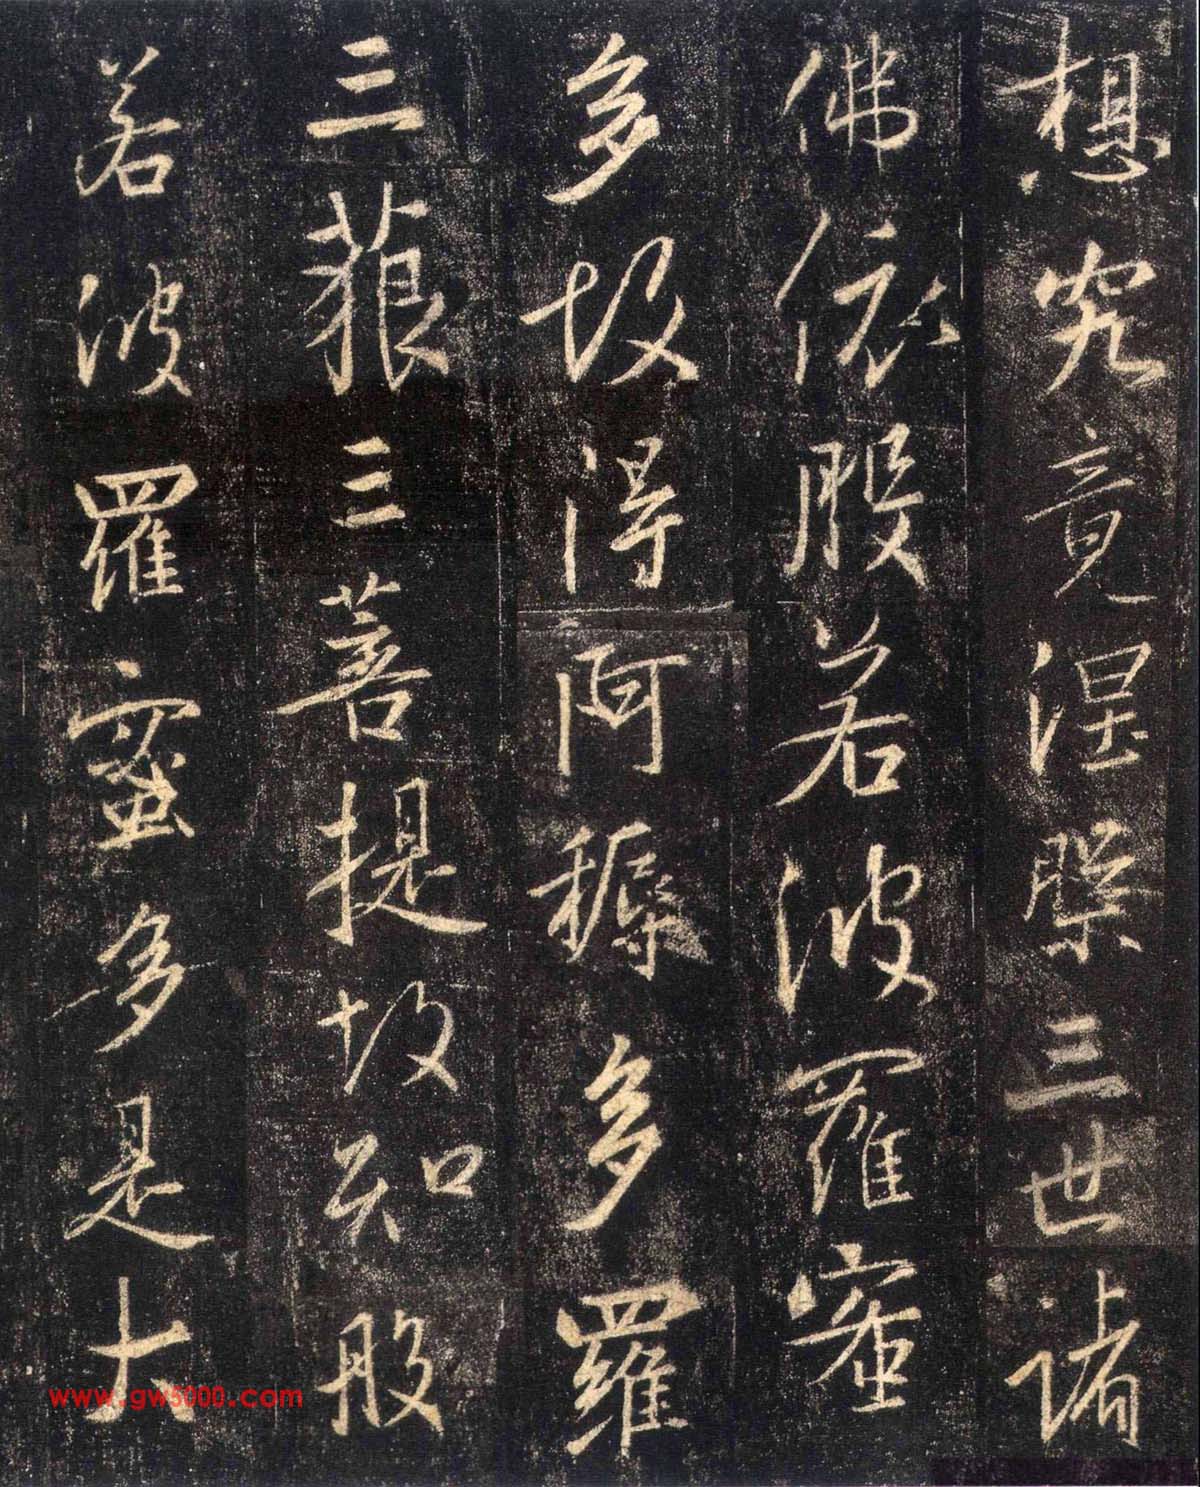 想究竟涅槃三世諸
佛依般若波羅蜜
多故得阿耨多羅
三藐三菩提故知般
若波羅蜜多是大
www.gw5000.com